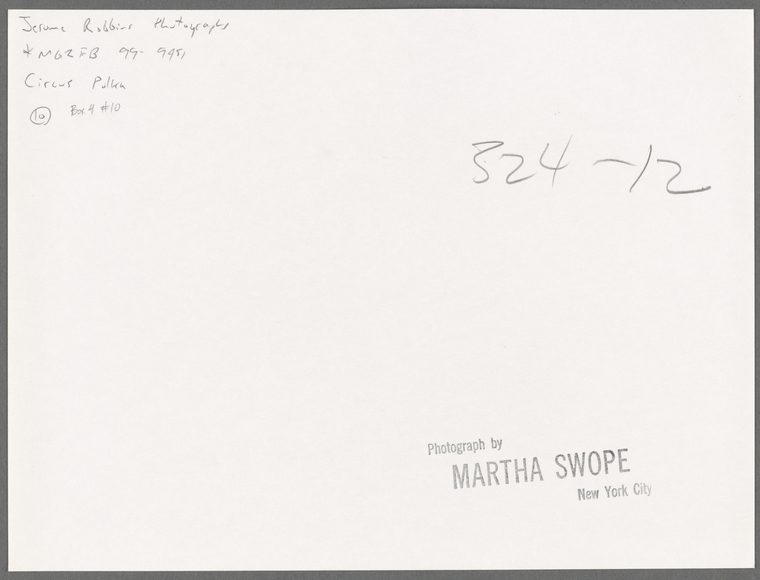 Jerome Robbins Photographs
*MGZEB 99- 9951
Circus Polka
10 Box 4 #10
324-12
Photograph by
MARTHA SWOPE
New York City